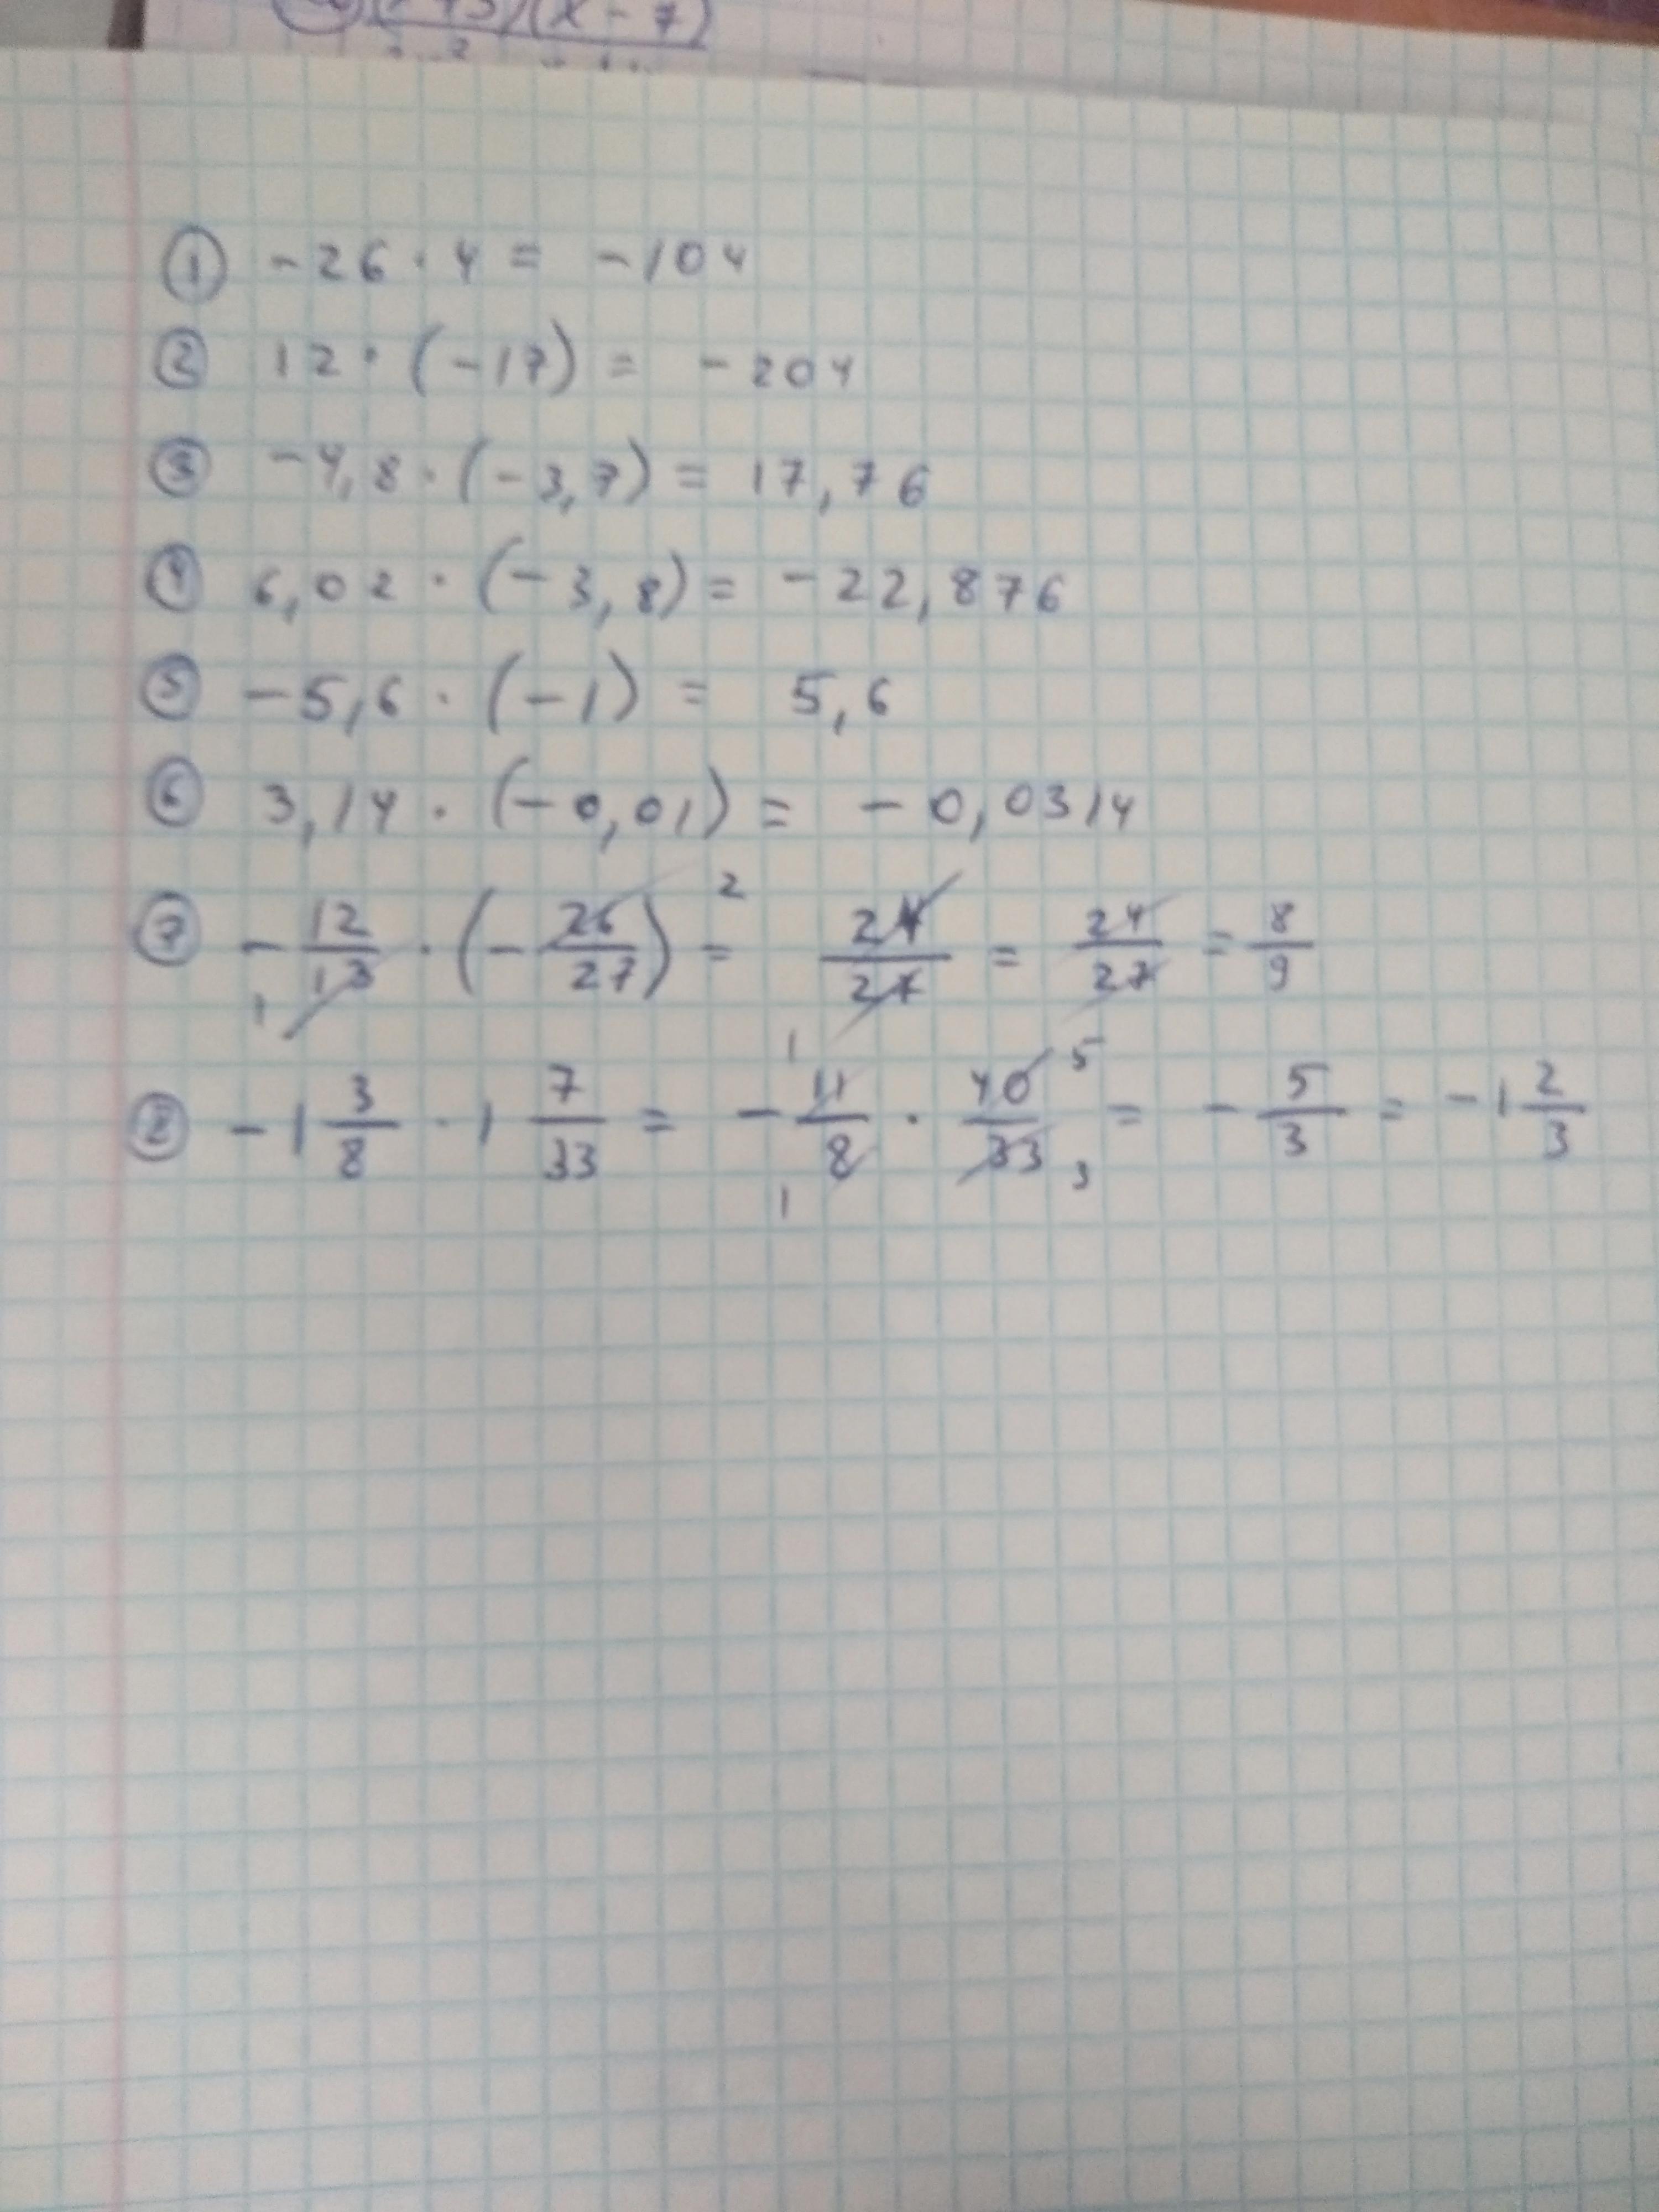 (x-7)
① -26 · 4 = -104
② 12 · (-17) = -204
③ -4,8 · (-3,7) = 17,76
④ 6,02 · (-3,8) = -22,876
⑤ -5,6 · (-1) = 5,6
⑥ 3,14 · (-0,01) = -0,0314
⑦ -12/13 · (-26/27) = 24/27 = 24/27 = 8/9
⑧ -1 3/8 · 1 7/33 = -11/8 · 40/33 = -5/3 = -1 2/3